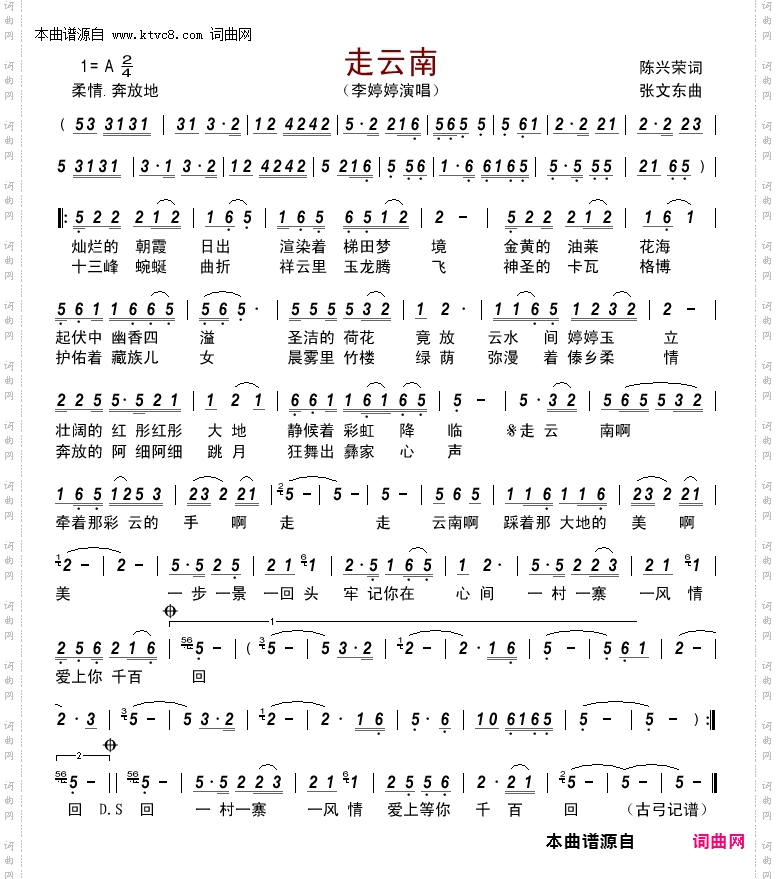 本曲谱源自 www.ktvc8.com 词曲网
走云南
1=A 2/4
陈兴荣词
柔情.奔放地
(李婷婷演唱)
张文东曲
( 53 3131 | 31 3·2 | 12 4242 | 5·2 216 | 565 5 | 5 61 | 2·2 21 | 2·2 23 |
5 3131 | 3·1 3·2 | 12 4242 | 5 216 | 5 56 | 1·6 6165 | 5·5 55 | 21 65 ) |
|: 522 212 | 165 | 165 6512 | 2 - | 522 212 | 16 1 |
灿烂的 朝霞 日出 渲染着 梯田梦 境 金黄的 油菜 花海
十三峰 蜿蜒 曲折 祥云里 玉龙腾 飞 神圣的 卡瓦 格博
561 1665 | 565· | 555 532 | 1 2· | 1165 1232 | 2 - |
起伏中 幽香四 溢 圣洁的 荷花 竟放 云水 间 婷婷玉 立
护佑着 藏族儿 女 晨雾里 竹楼 绿荫 弥漫 着 傣乡柔 情
225 5·521 | 1 21 | 661 1616 | 5 - | 5·32 | 565 532 |
壮阔的 红 彤红彤 大地 静候着 彩虹 降 临 𝄋走云 南啊
奔放的 阿 细阿细 跳月 狂舞出 彝家 心 声
165 1253 | 232 21 | 25 - | 5 - | 565 | 116 116 | 232 221 |
牵着那彩 云的 手 啊 走 走 云南啊 踩着那 大地的 美 啊
12 - | 2 - | 5·5 25 | 221 61 | 2·5 165 | 1 2· | 5·5 223 | 21 61 |
美 一步一景 一回头 牢 记你在 心间 一村一寨 一风 情
2 5 6 216 | 565 - | ( 35 - | 5 3·2 | 12 - | 2·16 | 5 - | 5 61 | 2 - |
1
爱上你 千百 回
2·3 | 35 - | 5 3·2 | 12 - | 2·16 | 5·6 | 10 6165 | 5 - | 5 - ) :|
2
565 - || 565 - | 5·5 223 | 21 61 | 2 556 | 2·2 21 | 65 - | 5 - |
回 D.S 回 一村一寨 一风 情 爱上等你 千 百 回 (古弓记谱)
本曲谱源自 词曲网
词曲网